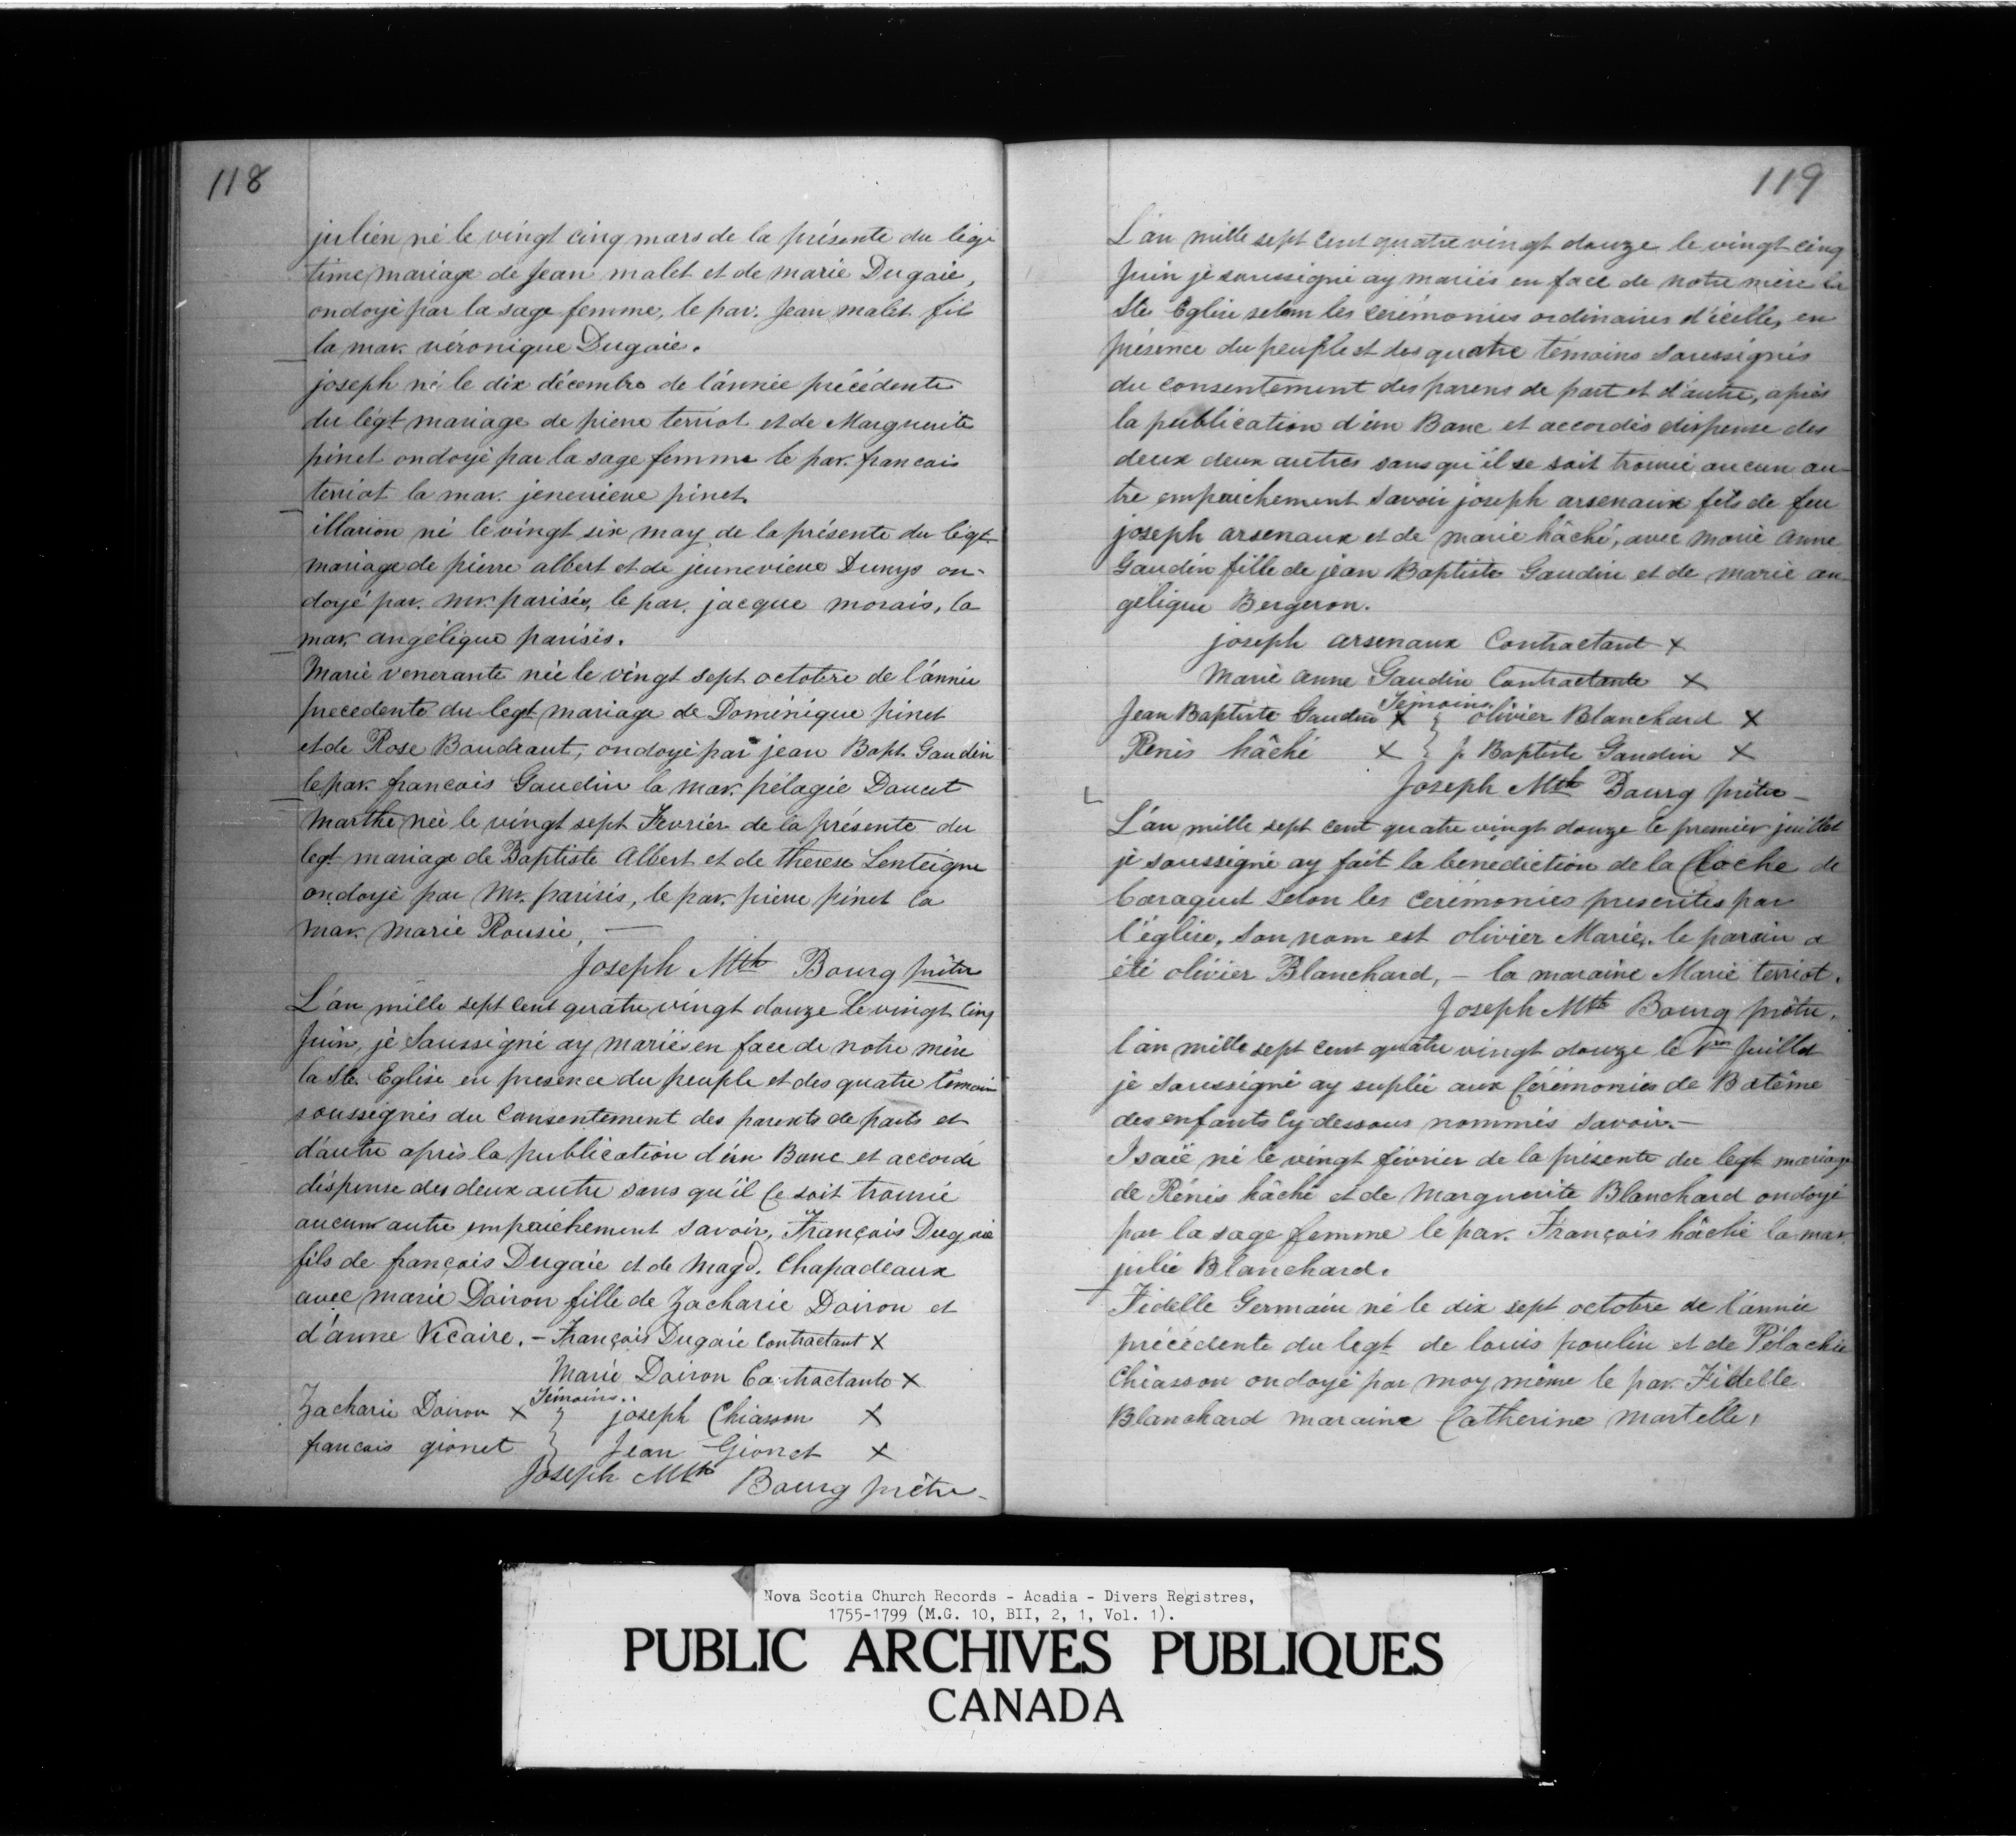 118
julien né le vingt cinq mars de la présente du légi
time mariage de Jean malet et de marie Dugaie,
ondoyé par la sage femme, le par. Jean malet fils
la mar. véronique Dugaie.
joseph né le dix décembre de l'année précédente
du légt mariage de pierre terriot et de Marguerite
pinet ondoyé par la sage femme le par. francais
terriot la mar. jenevieve pinet.
illarion né le vingt six may de la présente du légt
mariage de pierre albert et de jeunevieve Dunys on-
doyé par. mr. parisis, le par. jacque morais, la
mar. angélique parisis.
Marie venerante née le vingt sept octobre de l'année
precedente du legt mariage de Dominique pinet
et de Rose Boudraut, ondoyé par jean Bapt. Gaudin
le par. francois Gaudin la mar. pélagie Doucet
Marthe née le vingt sept Fevrier de la présente du
legt mariage de Baptiste Albert et de therese Lenteigne
ondoyé par Mr. parisis, le par. pierre pinet la
mar. Marie Rousie, —
Joseph Mth Bourg prêtre
L'an mille sept cent quatre vingt douze le vingt cinq
Juin, je Soussigné ay mariés en face de notre mère
la Ste. Eglise en presence du peuple et des quatre témoins
soussignés du Consentement des parents de parts et
d'autre après la publication d'un Banc et accordé
dispense des deux autre sans qu'il ce soit trouvé
aucun autre empaichement savoir, François Dugaie
fils de françois Dugaie et de Magd. Chapadeaux
avec marie Doiron fille de Zacharie Doiron et
d'anne Vicaire. – François Dugaie Contractant X
Marie Doiron Contractante X
Témoins..
Zacharie Doiron X } joseph Chiasson X
francois gionet } Jean Gionet X
Joseph Mth Bourg prêtre –
119
L'an mille sept cent quatre vingt douze le vingt cinq
Juin je soussigné ay mariés en face de notre mère la
Ste Eglise selon les cérémonies ordinaires d'icelle, en
présence du peuple et des quatre témoins soussignés
du consentement des parens de part et d'autre, après
la publication d'un Banc et accordés dispense des
deux deux autres sans qu'il se soit trouvé aucun au-
tre empaichement savoir joseph arsenaux fils de feu
joseph arsenaux et de marie hâché, avec marie anne
Gaudin fille de jean Baptiste Gaudin et de marie an
gelique Bergeron.
joseph arsenaux Contractant X
Marie anne Gaudin Contractante X
Témoins.
Jean Baptiste Gaudin X } olivier Blanchard X
Renés hâché X } j. Baptiste Gaudin X
Joseph Mth Bourg prêtre –
L'an mille sept cent quatre vingt douze le premier juillet
je soussigné ay fait la benediction de la Cloche de
Caraquet selon les cérémonies prescrites par
l'église, son nom est olivier Marie, le parain a
été olivier Blanchard, – la maraine Marie terriot.
Joseph Mth Bourg prêtre.
l'an mille sept cent quatre vingt douze le 1er Juillet
je soussigné ay suplée aux Cérémonies de Batême
des enfants cy dessous nommés savoir. –
Isaïe né le vingt février de la présente du legt mariage
de Rénés hâché et de Marguerite Blanchard ondoyé
par la sage femme le par. François hâché la mar.
julie Blanchard.
Fidelle Germain né le dix sept octobre de l'année
précédente du legt de louis poulin et de Pélachie
Chiasson ondoyé par moy même le par. Fidelle
Blanchard maraine Catherine Martelle,
Nova Scotia Church Records - Acadia - Divers Registres,
1755-1799 (M.G. 10, BII, 2, 1, Vol. 1).
PUBLIC ARCHIVES PUBLIQUES
CANADA